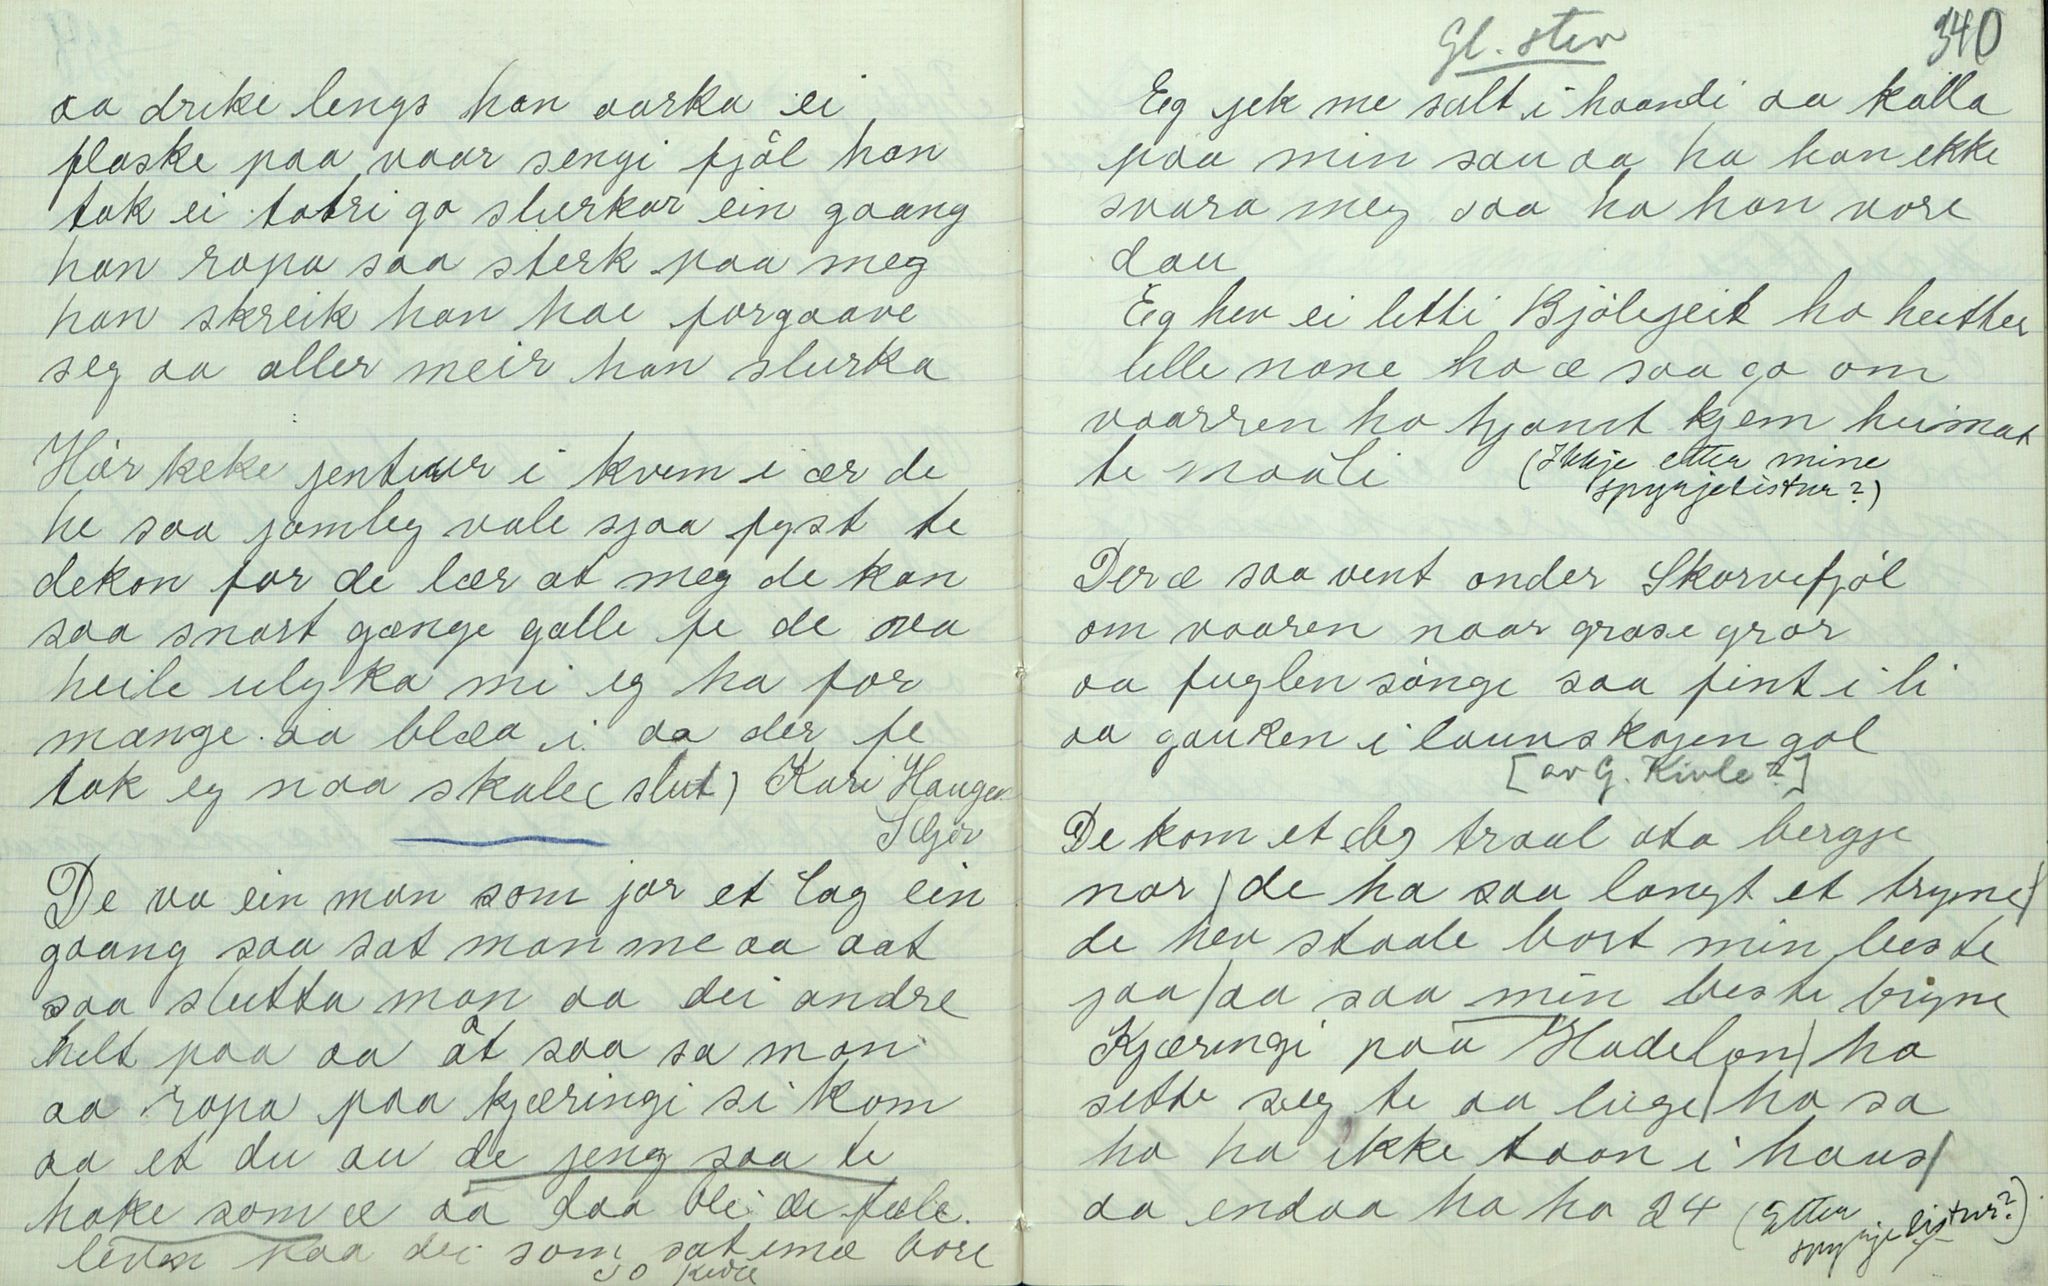 aa drike lengs han aarka ei
flaske paa vaar sengi fjöl han
tok ei totri go slurkar ein gaang
han ropa saa sterk paa meg
han skreik han hae forgaave
seg aa aller meir han slurka
Hör keke jentur i kvem i ær de
he saa jamleg vale sjaa fyst te
dekon for de lær at meg de kan
saa snart gænge galle fe de va
heile ulyka mi eg ha for
mange aa blæa i aa der fe
tok eg naa skale (slut) Kari Haugen
De va ein man som jor et lag ein
gaang saa sat man me aa aat
saa slutta man aa dei andre
helt paa aa åt saa sa man
aa ropa paa kjæringi si kom
aa et du au de jeng saa te
hake som æ aa daa blei de fæle
som sat imæ bore
Kivle
340
Gl. stev
Eg jek me salt i haandi aa kalla
paa min sau aa ha han ikke
svara meg saa ha han vore
dau
Eg hev ei litti Bjölejeit ho heither
lille none ho æ saa go om
vaarren ho tjamt kjem heimat
te maali
(Ikkje etter mine
spyrjelistur?)
Der æ saa vent onder Skorvefjöl
om vaaren naar grase gror
aa fuglen sönge saa fint i li
aa gauken i launskogen gol
[av G. Kivle?]
De kom et traal ata bergje
nor / de ha saa langt et tryne /
de hev staale bort min beste
jaa / aa saa min beste bryne
Kjæringi paa Hadeland / ho
sette seg te aa liuge / ho sa
ho ha ikke taan i haus /
aa endaa ho ha 24 (Etter
spyrjelistur?)